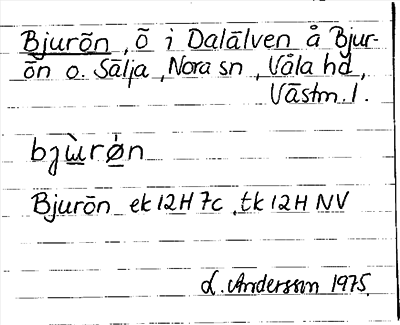 Bjurön, ö i Dalälven å Bjur-
ön o. Sälja, Nora sn, Våla hd,
Västm. l.
bjɯ̀rǿn
Bjurön ek 12H7c, tk 12H NV
L. Andersson 1975.